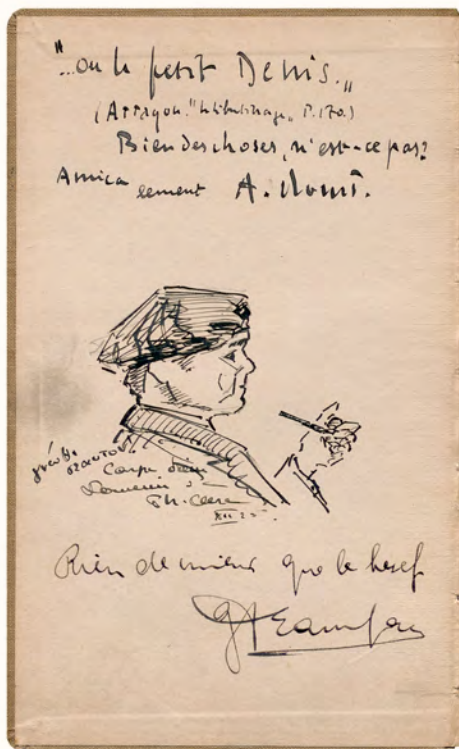 "...ou le petit Denis.„
(Arragon. "Libertinage„ P. 170.)
Bien des choses, n'est-ce pas?
Amicalement A.
γνῶθι σεαυτόν
Carpe diem
Souvenir
Th.
XII 25
Rien de mieux que le